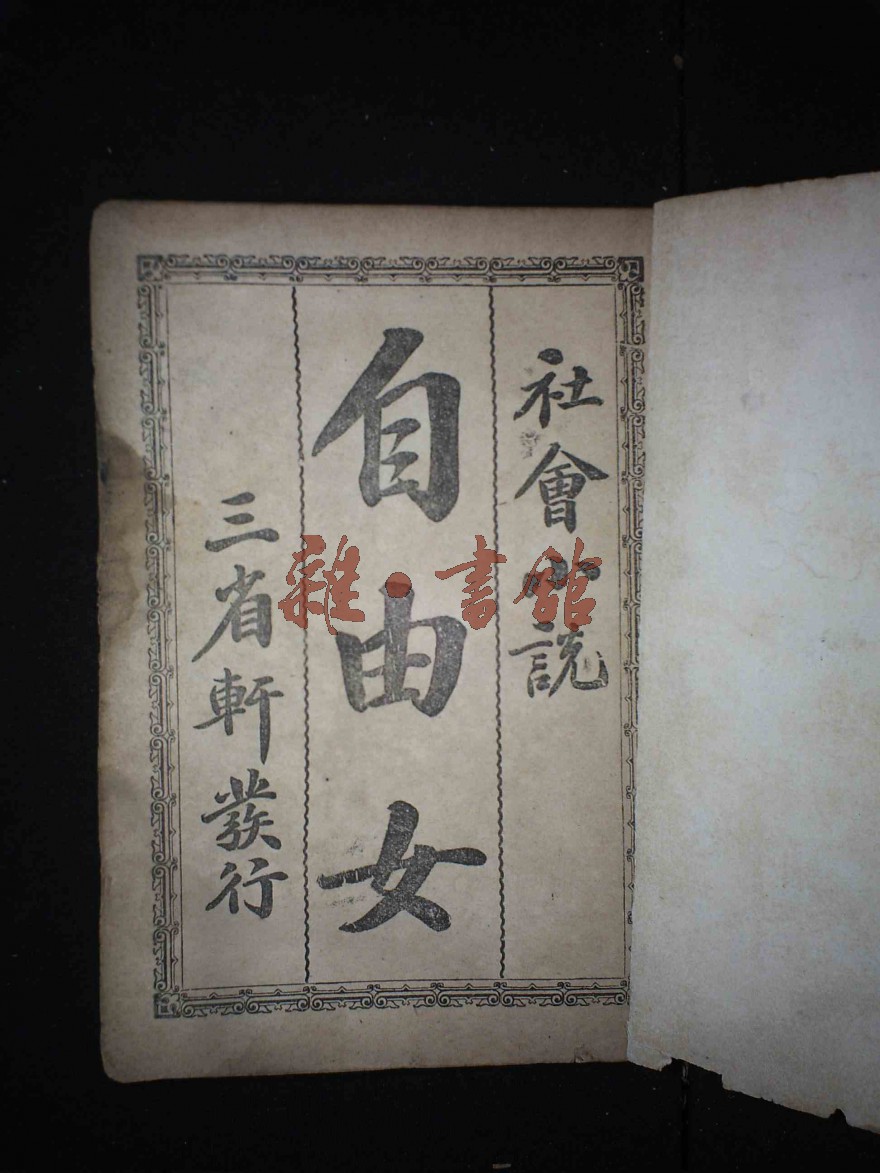 社會小説
自由女
三省軒發行
雜·書館